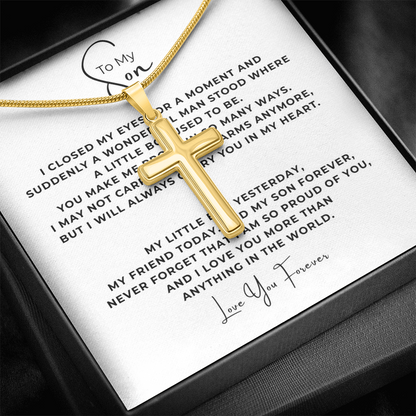 To My
Son
I CLOSED MY EYES FOR A MOMENT AND
SUDDENLY A WONDERFUL MAN STOOD WHERE
A LITTLE BOY USED TO BE.
YOU MAKE ME PROUD IN SO MANY WAYS.
I MAY NOT CARRY ARMS ANYMORE,
BUT I WILL ALWAYS CARRY YOU IN MY HEART.
MY LITTLE BOY YESTERDAY,
MY FRIEND TODAY AND MY SON FOREVER,
NEVER FORGET THAT I AM SO PROUD OF YOU,
AND I LOVE YOU MORE THAN
ANYTHING IN THE WORLD.
Love You Forever